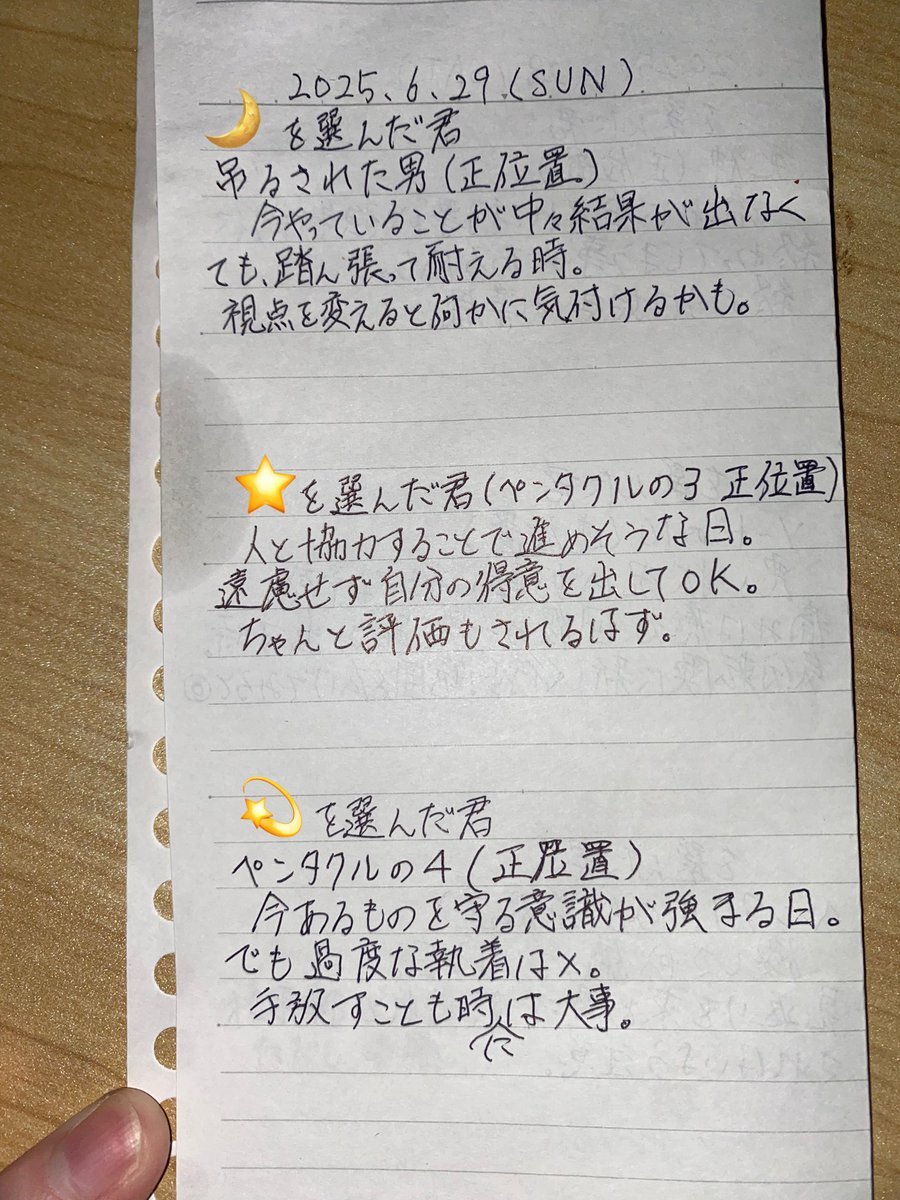 2025.6.29(SUN)
🌙を選んだ君
吊るされた男(正位置。)
今やっていることが中々結果が出なく
ても、踏ん張って耐える時。
視点を変えると何かに気付けるかも。
⭐を選んだ君(ペンタクルの3 正位置)
人と協力することで進めそうな日。
遠慮せず自分の得意を出してOK。
ちゃんと評価もされるはず。
💫を選んだ君
ペンタクルの4(正位置)
今あるものを守る意識が強まる日。
でも過度な執着は×。
手放すことも時には大事。